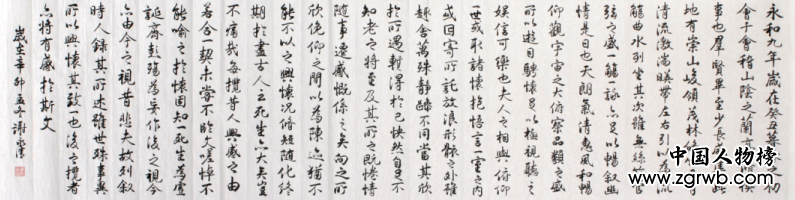 永和九年歲在癸丑暮春之初
會于會稽山陰之蘭亭脩稧
事也群賢畢至少長咸集此
地有崇山峻領茂林脩竹又有
清流激湍暎帶左右引以為流
觴曲水列坐其次雖無絲竹管
弦之盛一觴一詠亦足以暢敘幽
情是日也天朗氣清惠風和暢
仰觀宇宙之大俯察品類之盛
所以遊目騁懷足以極視聽之
娛信可樂也夫人之相與俯仰
一世或取諸懷抱悟言一室之內
或因寄所託放浪形骸之外雖
趣舍萬殊靜躁不同當其欣
於所遇暫得於己快然自足不
知老之將至及其所之既惓情
隨事遷感慨係之矣向之所
欣俛仰之間以為陳迹猶不
能不以之興懷況脩短隨化終
期於盡古人云死生亦大矣豈
不痛哉每攬昔人興感之由
若合一契未嘗不臨文嗟悼不
能喻之於懷固知一死生為虛
誕齊彭殤為妄作後之視今
亦由今之視昔悲夫故列敘
時人錄其所述雖世殊事異
所以興懷其致一也後之攬者
亦將有感於斯文
歲在辛卯孟冬謝
中国人物榜
www.zgrwb.com